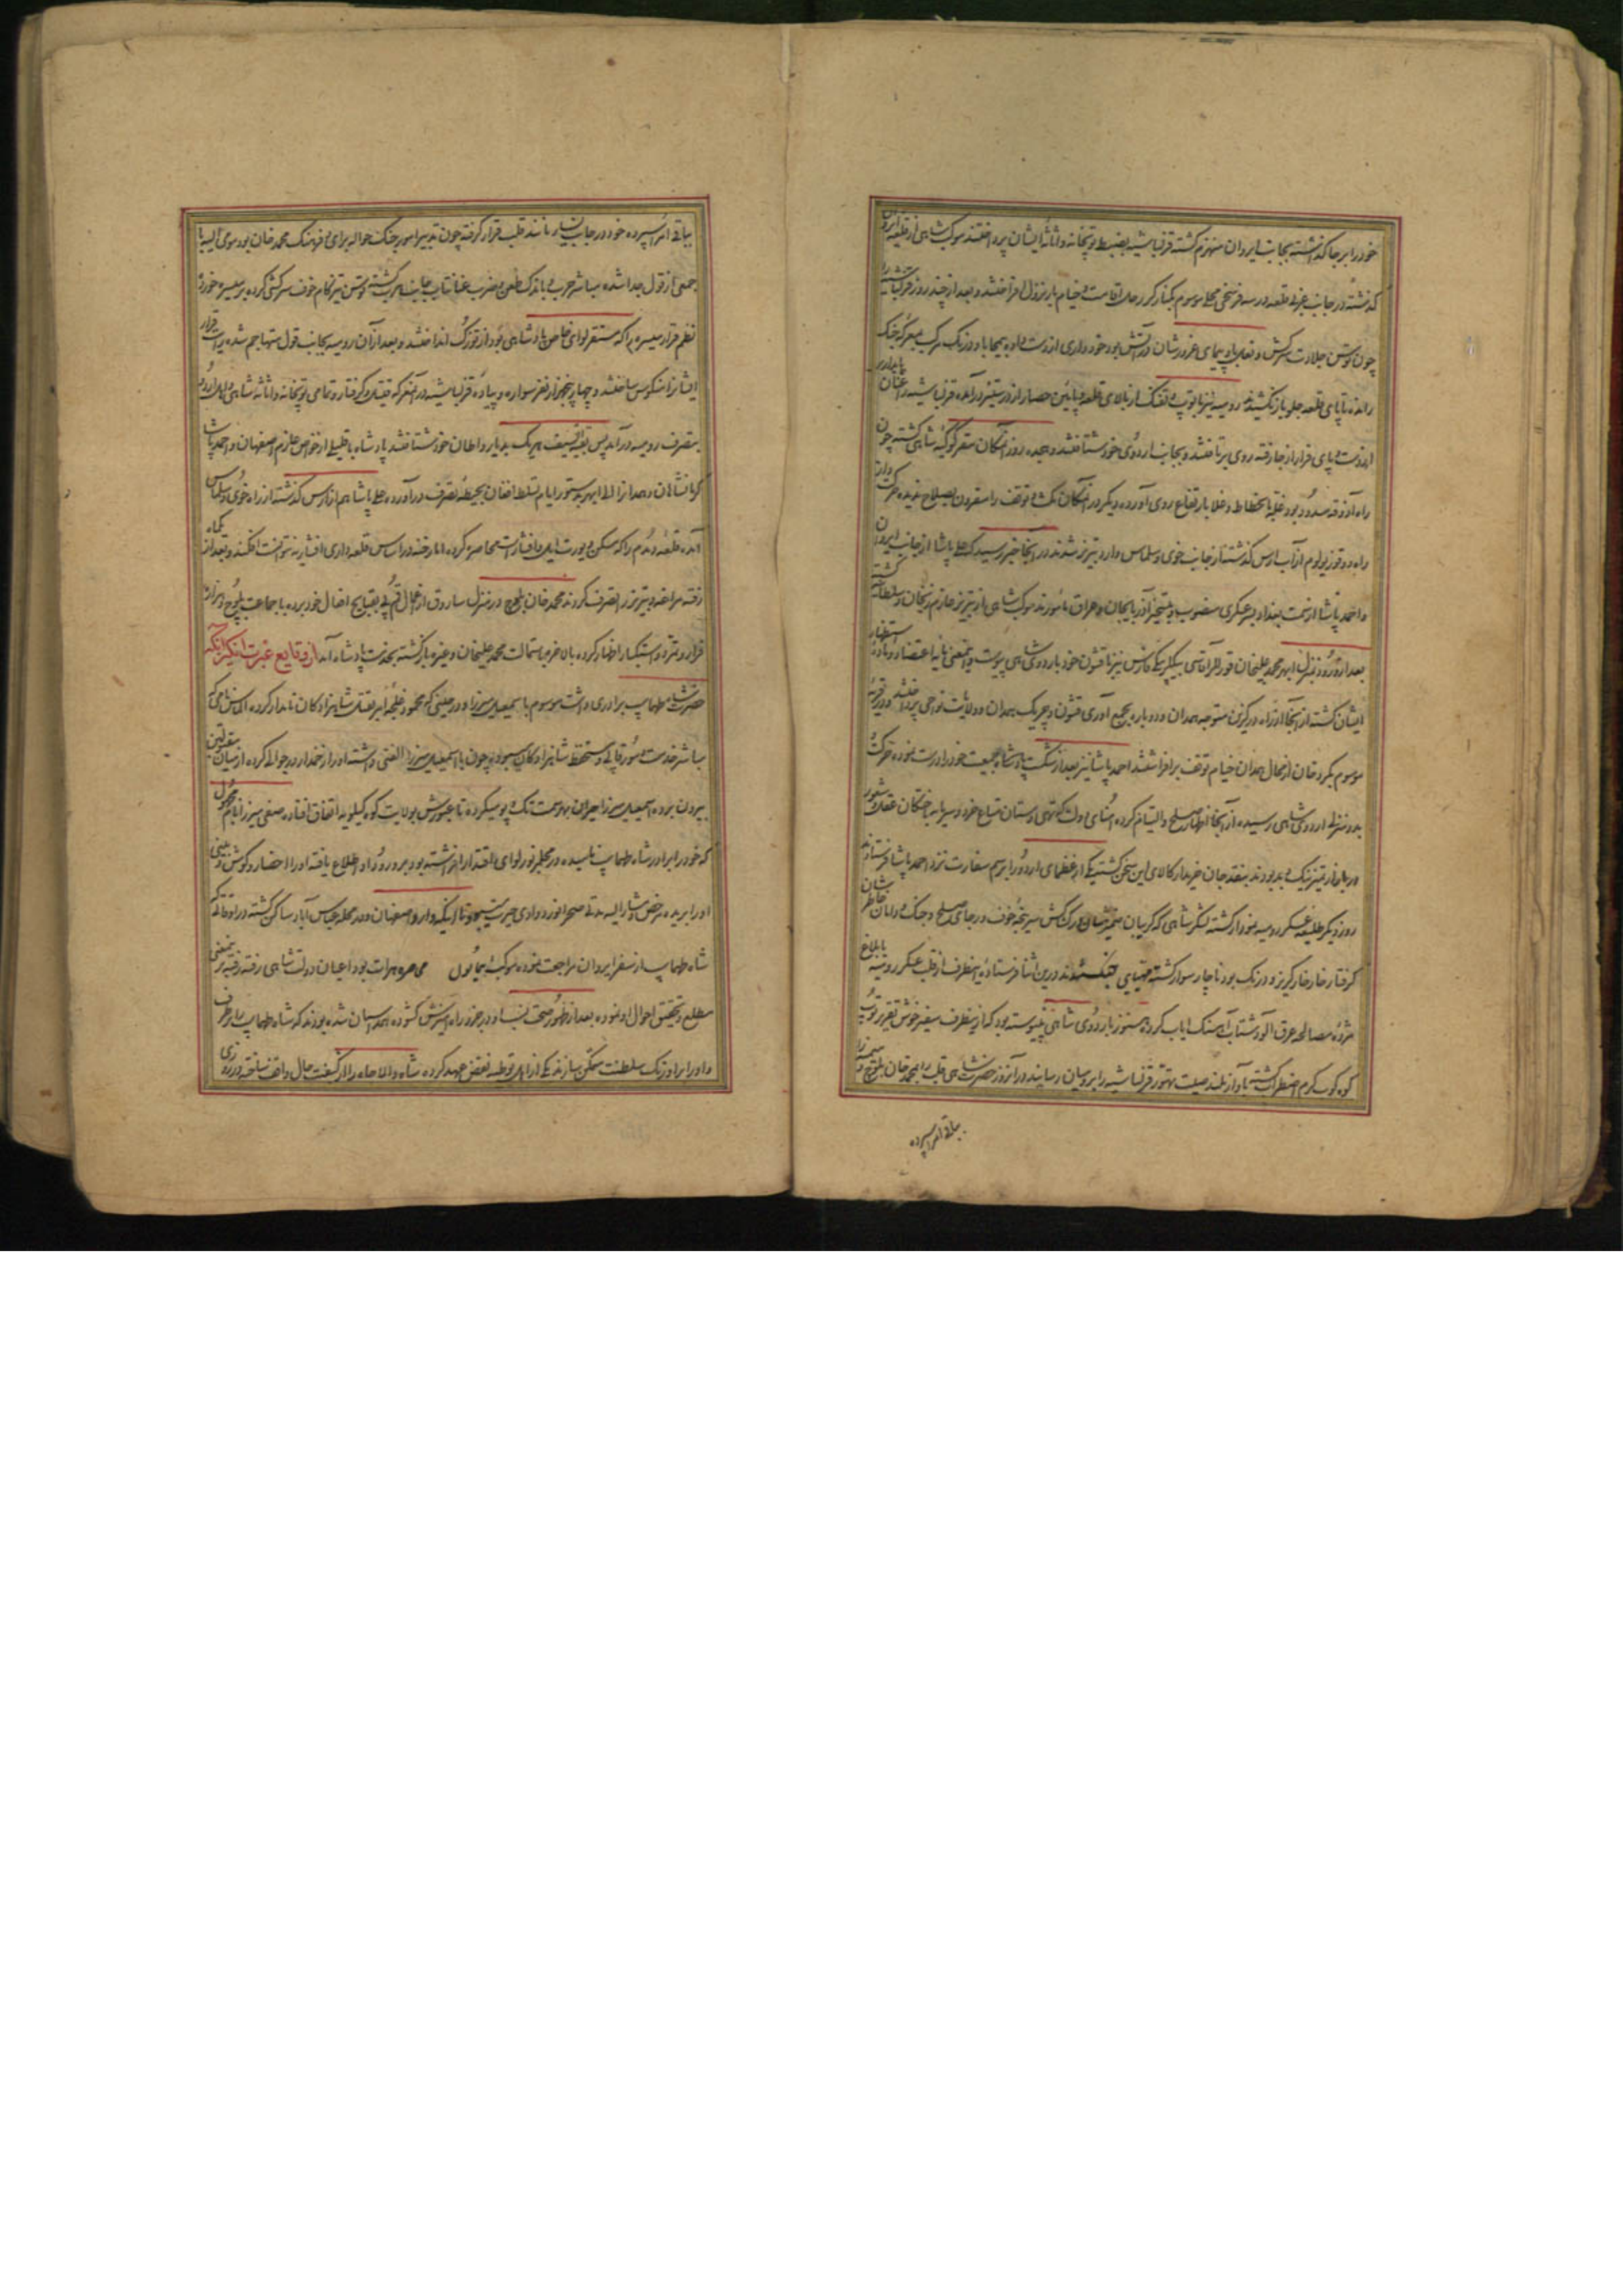 خود را بر جا گذاشته بجانب ایروان منهزم گشته قزلباشیه بضبط توپخانه و اثاثه ایشان پرداختند موکب شاهی از قلعه ایروان
گذشته در جانب غربی قلعه در سه فرسخی محل موسوم بکنار کر رحل اقامت و خیام بار نزول افراختند و بعد از چند روز قزلباشیه را
چون توسن جلادت سرکش و نعل باد پیمای غرورشان در آتش بود خودداری از دست داده بیمحابا و درنگ مرکب بمعرکه جنک
رانده تا پای قلعه جلو باز نکشیدند رومیه نیز با توپ و تفنک از بالای قلعه و پائین حصار از در ستیز درآمده قزلباشیه را عنان پایداری
از دست و پای قرار از جا رفته روی برتافتند و بجانب اردوی خود شتافتند و هجده روز آنمکان مقر کوکبه شاهی گشته چون
راه آذوقه مسدود بود غله بانحطاط و غلا بارتفاع روی آورده دیگر در آنمکان مکث و توقف را مقرون بصلاح ندیده حرکت و از
راه دوقوز یولوم از آب ارس گذشته از جانب خوی و سلماس وارد تبریز شدند در آنجا خبر رسید که علی پاشا از جانب ایروان
و احمد پاشا از سمت بغداد بسرعسکری منصوب و بتسخیر آذربایجان و عراق مأمورند موکب شاهی از تبریز عازم زنجان و سلطانیه گشته
بعد از ورود بمنزل ابهر محمد علیخان قوللر آقاسی بیگلربیگی فارس نیز با قشون خود باردوی شاهی پیوست و اینمعنی مایه اعتضاد و ماده استظهار
ایشان گشته از آنجا از راه درگزین متوجه همدان و دوباره بجمع آوری قشون و چریک همدان و ولایات نواحی پرداختند و در قریه
موسوم بکردخان از محال همدان خیام توقف برافراشتند احمد پاشا نیز بعد از شکست پادشاه جمعیت خود را درست نموده حرکت
بدو منزلی اردوی شاهی رسیده از آنجا اظهار صلح و التیام کرده امنای دولت که تهی دستان متاع خرد و سرمایه باختگان عقل و شعور
و بیمایه از تمیز نیک و بد بودند بنقد جان خریدار کالای این سخن گشته یکی از عظمای اردو را برسم سفارت نزد احمد پاشا فرستادند
روز دیگر طلیعه عسکر رومیه نمودار گشته لشکر شاهی که گریبان ضمیرشان در کشاکش سرپنجه خوف و رجای صلح و جنک و دامان خاطر شان
گرفتار خار خار گریز و درنک بود ناچار سوار گشته مهیای جنک شدند در این اثنا فرستاده اینطرف از قلب عسکر رومیه بابلاغ
مژده مصالحه عرق آلود شتاب آهنک ایاب کرده هنوز باردوی شاهی نپیوسته بود که از اینطرف سفیر خوش تقریر توپ
کوه کوب گرم اضطراب گشته بآواز بلند صلیت تهور قزلباشیه را برومیان رسانید در آنروز حضرت شاهی قلب را بمحمد خان بلوچ و میسره را
بباقی امرا سپرده
بباقی امرا سپرده خود در جانب یسار مانند قلب قرار گرفته چون تدبیر امور جنک حواله برای و فرهنک محمد خان بود مومی الیه با
جمعی از قول جدا شده مباشر حرب و باندک طعن و ضرب عنانتاب جانب هرب گشته توسن تیزکام خوف سرکشی کرده بر میسره خورد
نظم قرار میسره را که مستقر لوای خاص پادشاهی بود از توزک انداختند و بعد از آن رومیه بجانب قول متهاجم شده رایات قرار
ایشانرا منکوس ساختند و چهار پنجهزار نفر سواره و پیاده قزلباشیه در آنمعرکه قتیل و گرفتار و تمامی توپخانه و اثاثه شاهی و اهل اردو
بتصرف رومیه درآمد پس بقیة السیف هر یک بدیار و اوطان خود شتافتند پادشاه با قلیلی از خواص عازم اصفهان و احمد پاشا
کرمانشاهان و همدان را الی ابهر بدستور ایام تسلط افغان بحیطه تصرف درآورده علی پاشا هم از ارس گذشته از راه خوی و سلماس
آمده قلعه دمدم را که مسکن و یورت ایل افشار است محاصره کرده اما رخنه در اساس قلعه داری افشاریه نتوانست افکند و بعد از یکماه
رفته مراغه و تبریز را تصرف کردند محمد خان بلوچ در منزل ساروق از اعمال قم پی بقبایح افعال خود برده با جماعت بلوچ و هزاره
فرار و تمرد و استکبار اظهار کرده بالاخره باستمالت محمد علیخان و غیره بازگشته بخدمت پادشاه آمد از وقایع عبرت انگیز آنکه
حضرت شاه طهماسب برادری داشت موسوم باسمعیل میرزا و در حینی که محمود غلجه امر بقتل شاهزادگان نامدار کرده الماس نامی که
مباشر خدمت سورقاپی و مستحفظ شاهزادگان میبود چون با اسمعیل میرزا الفتی داشته او را زخمدار در جوالی کرده از میان مقتولین
بیرون برده اسمعیل میرزا حیران بهر سمت تک و پو میکرده تا عبورش بولایت کوه کیلویه اتفاق افتاده صفی میرزا نام مجهول
که خود را برادر شاه طهماسب نامیده در محل مزبور لوای اقتدار افراشته بود بر ورود او اطلاع یافته او را احضار و گوش و بینی
او را بریده مرخص مشارالیه مدتی صحرانورد وادی حیرت میبود تا اینکه وارد اصفهان و در محله عباس آباد ساکن گشته در اوقاتی که
شاه طهماسب از سفر ایروان مراجعت نموده موکب همایون محاصره هرات بود اعیان دولت شاهی رفته رفته بر اینمعنی
مطلع و تحقیق احوال او نموده بعد از ظهور صحت نسب او در خفیه راه آمیزش گشوده همداستان شده بودند که شاه طهماسب را بر طرف
و او را بر اورنک سلطنت متمکن سازند یکی از اهل توطئه نقض عهد کرده شاه والاجاه را از کیفیت حال واقف ساخته در روزی